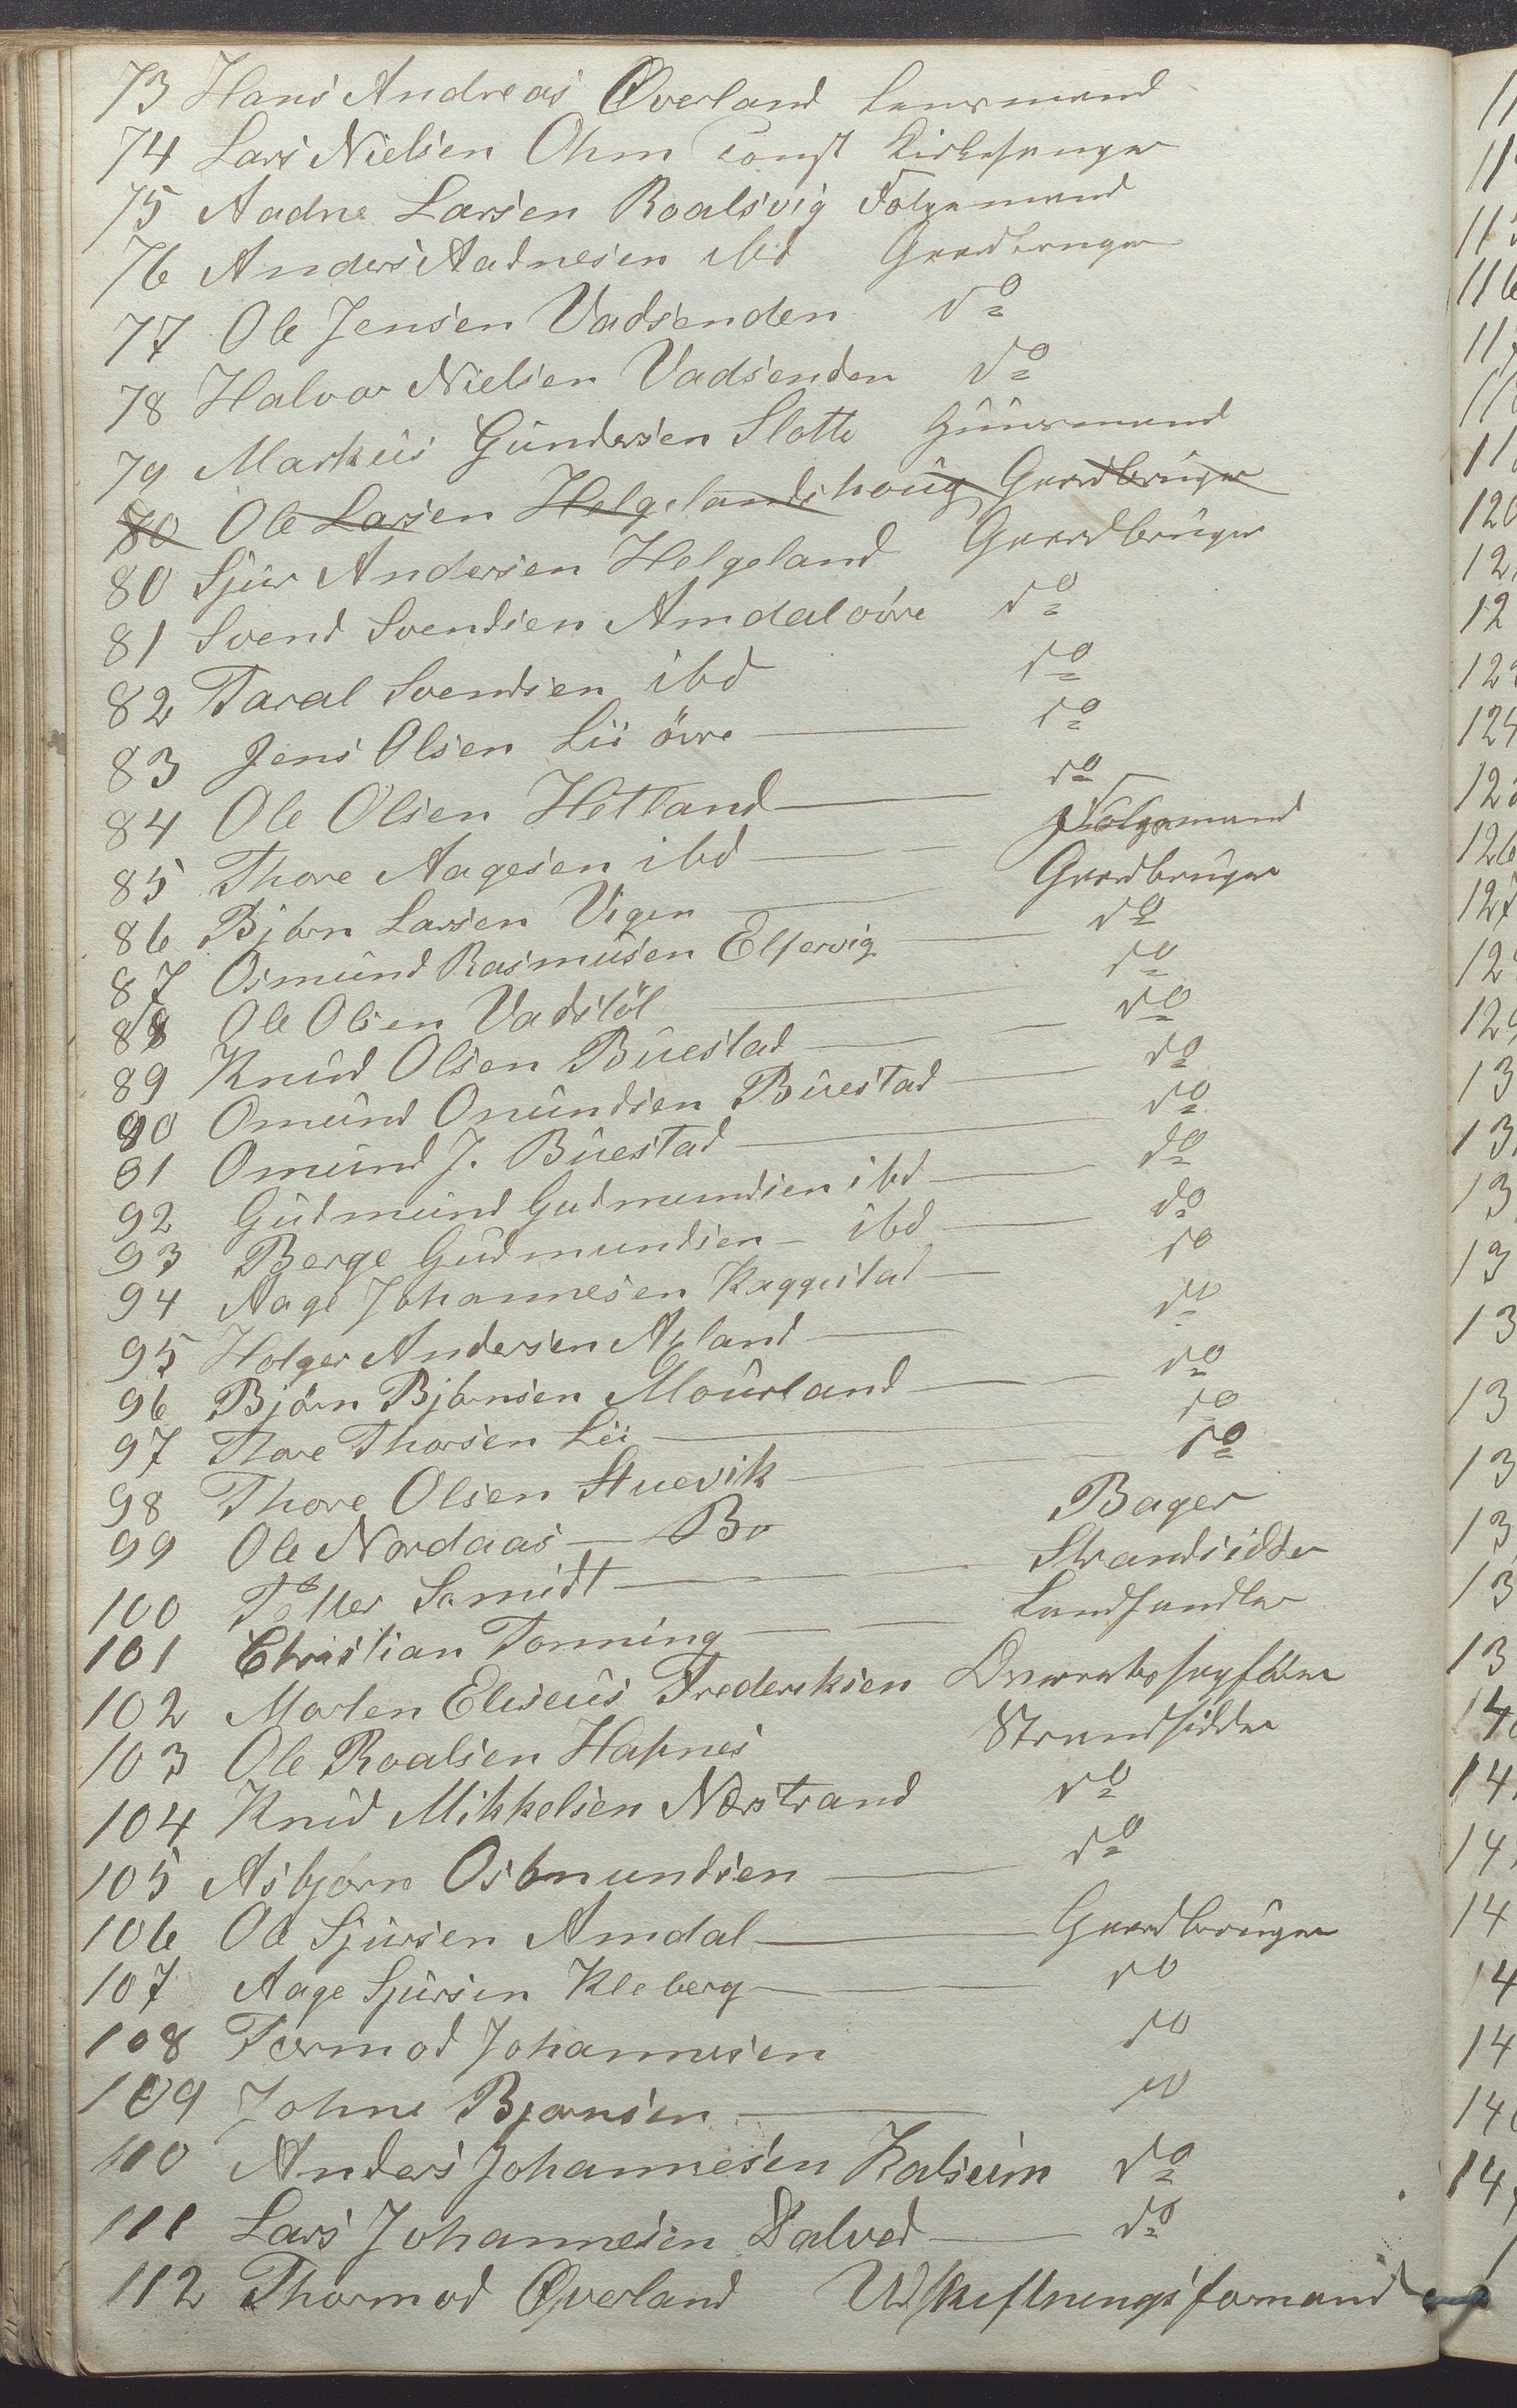 73 Hans Andreas Øverland Lensmand
74 Lars Nielsen Ohm const Kirkesanger
75 Aadne Larsen Roalsvig Folgemand
76 Anders Aadnesen ibd Gaardbruger
77 Ole Jensen Vadsenden do
78 Halvor Nielsen Vadsenden do
79 Markus Gundersen Slotte Huusmand
80 Ole Larsen Helgelandshoug Gaardbruger
80 Sjur Andersen Helgeland Gaardbruger
81 Svend Svendsen Amdal övre do
82 Taral Svendsen ibd do
83 Jens Olsen Lii övre do
84 Ole Olsen Hetland do
85 Thore Aagesen ibd Folgemand
86 Bjørn Larsen Vigen Gaardbruger
87 Osmund Rasmusen Eltervig do
88 Ole Olsen Vadstöl do
89 Knud Olsen Buestad do
90 Omund Onundsen Buestad do
91 Omund J. Buestad do
92 Gudmund Gudmundsen ibd do
93 Berge Gudmundsen - ibd do
94 Aage Johannesen Kaggestad do
95 Holger Andersen Aland do
96 Björn Björnsen Mourland do
97 Thore Thorsen Lii do
98 Thore Olsen Stuevik do
99 Ole Nordaas - Bo Bager
100 Töller Samidt Strandsidder
101 Christian Tonning Landhandler
102 Morten Eliseus Frederiksen Overretssagfører
103 Ole Roalsen Hapnes Strandsidder
104 Knud Mikkelsen Nærstrand do
105 Asbjørn Osbmundsen do
106 Ole Sjursen Amdal Gaardbruger
107 Aage Sjursen Kleberg do
108 Tormod Johannesen do
109 Johne Bjørnsen do
110 Anders Johannesen Kalseim do
111 Lars Johannesen Dalved do
112 Thormod Øverland Udskiftningsformand